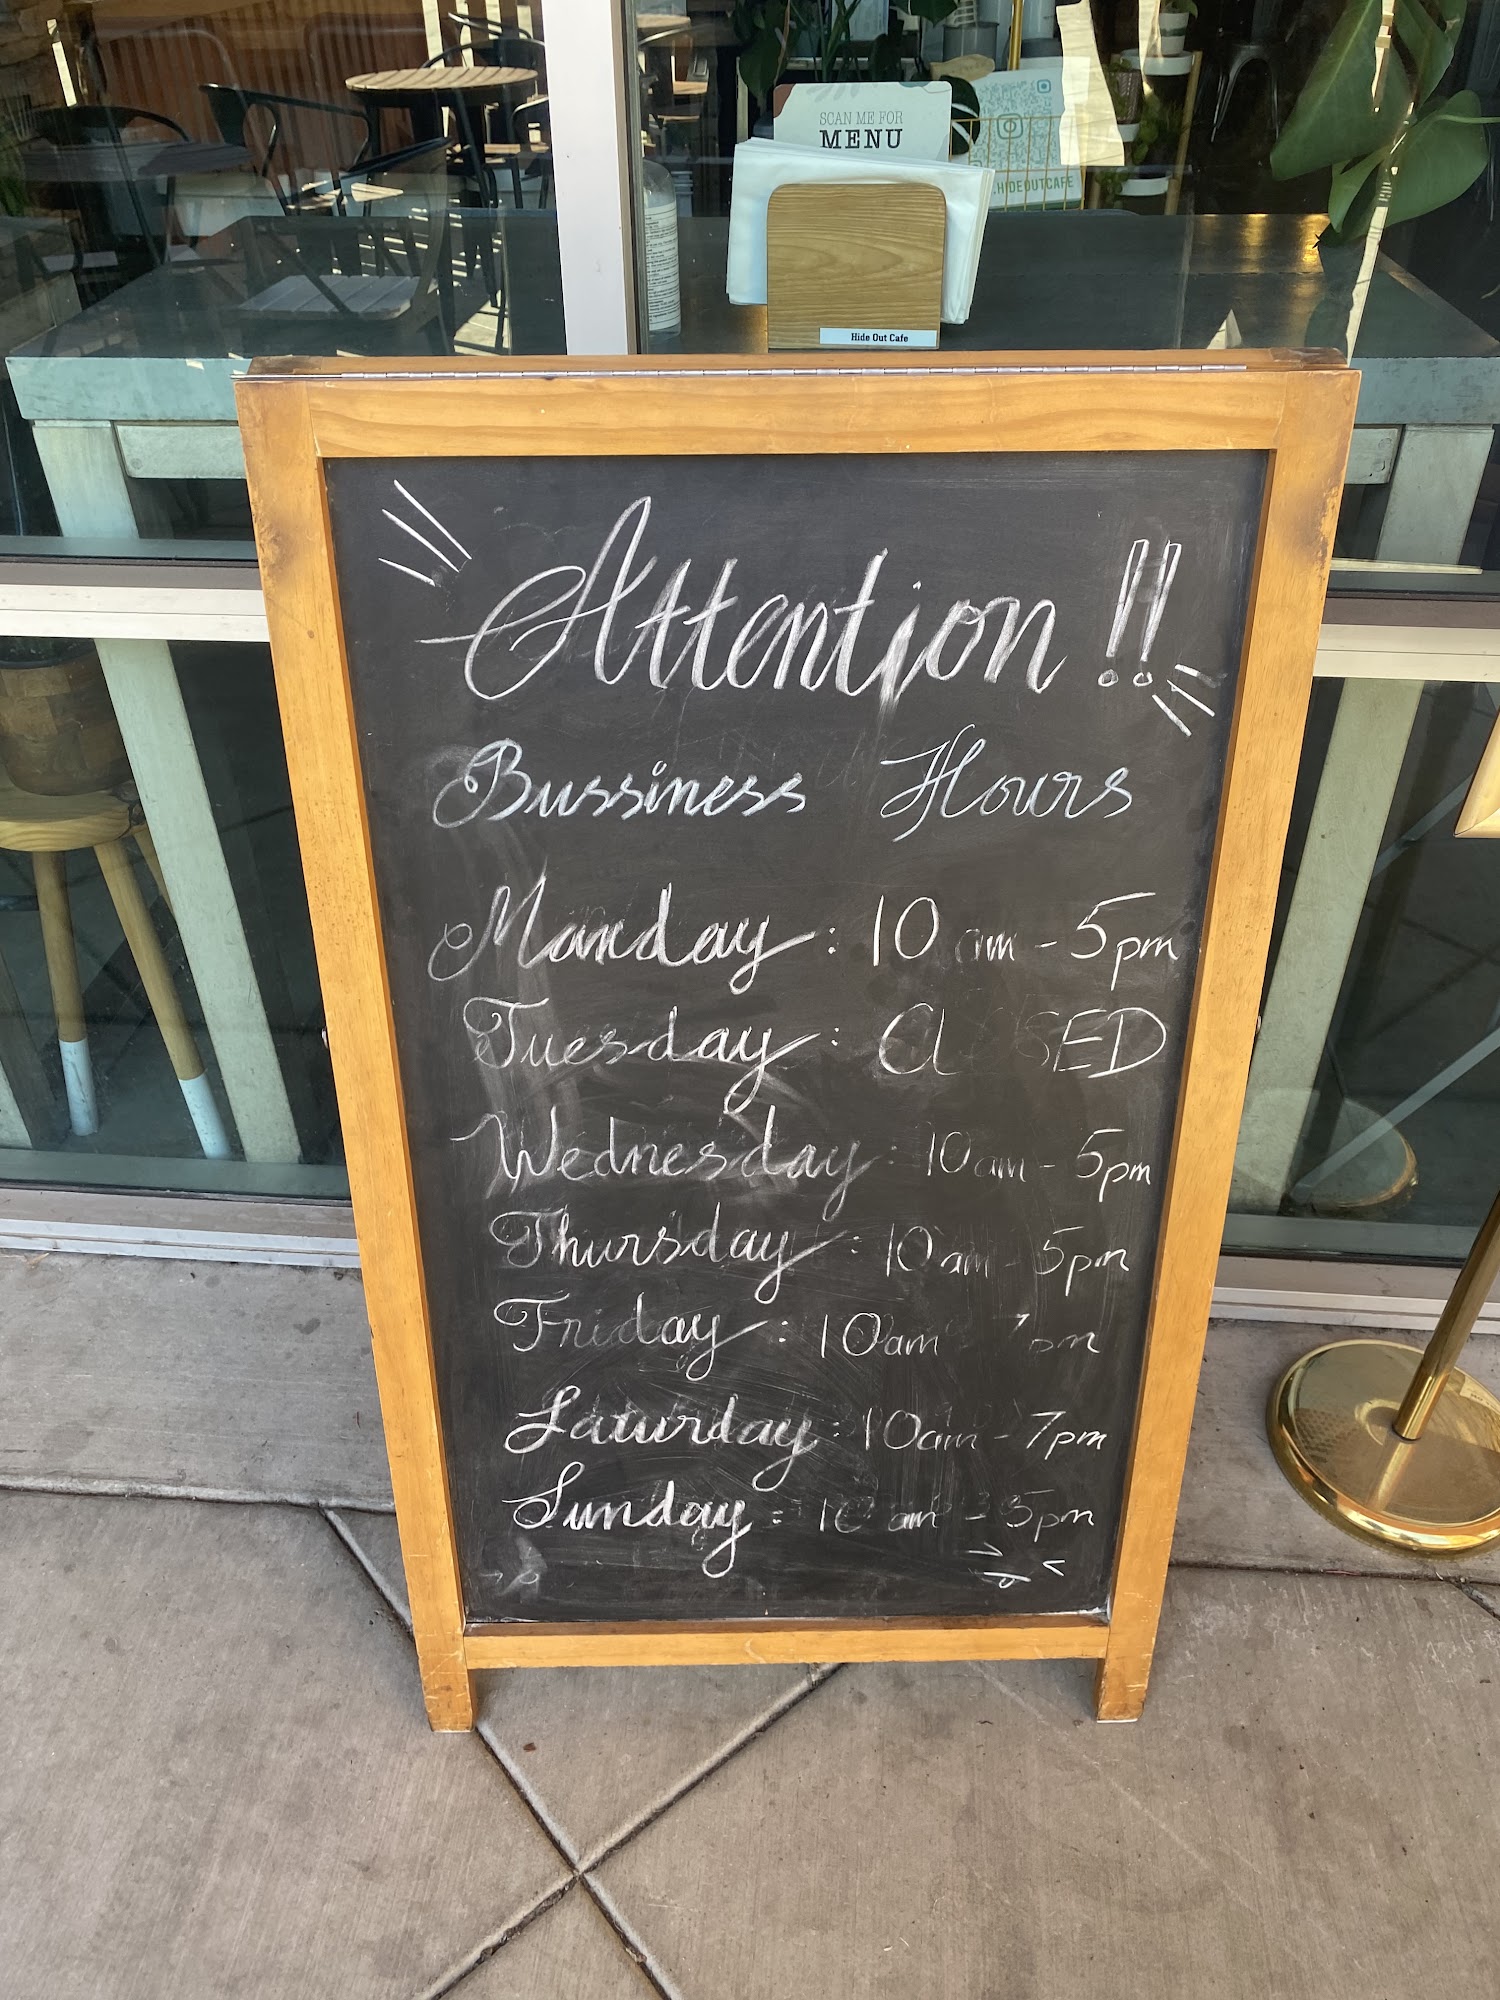 SCAN ME FOR
MENU
.HIDEOUTCAFE
Hide Out Cafe
Attention !!
Bussiness Hours
Monday : 10 am - 5pm
Tuesday : ClOSED
Wednesday : 10am - 5pm
Thursday : 10am - 5pm
Friday : 10am 7pm
Saturday : 10am - 7pm
Sunday : 10 am - 5pm